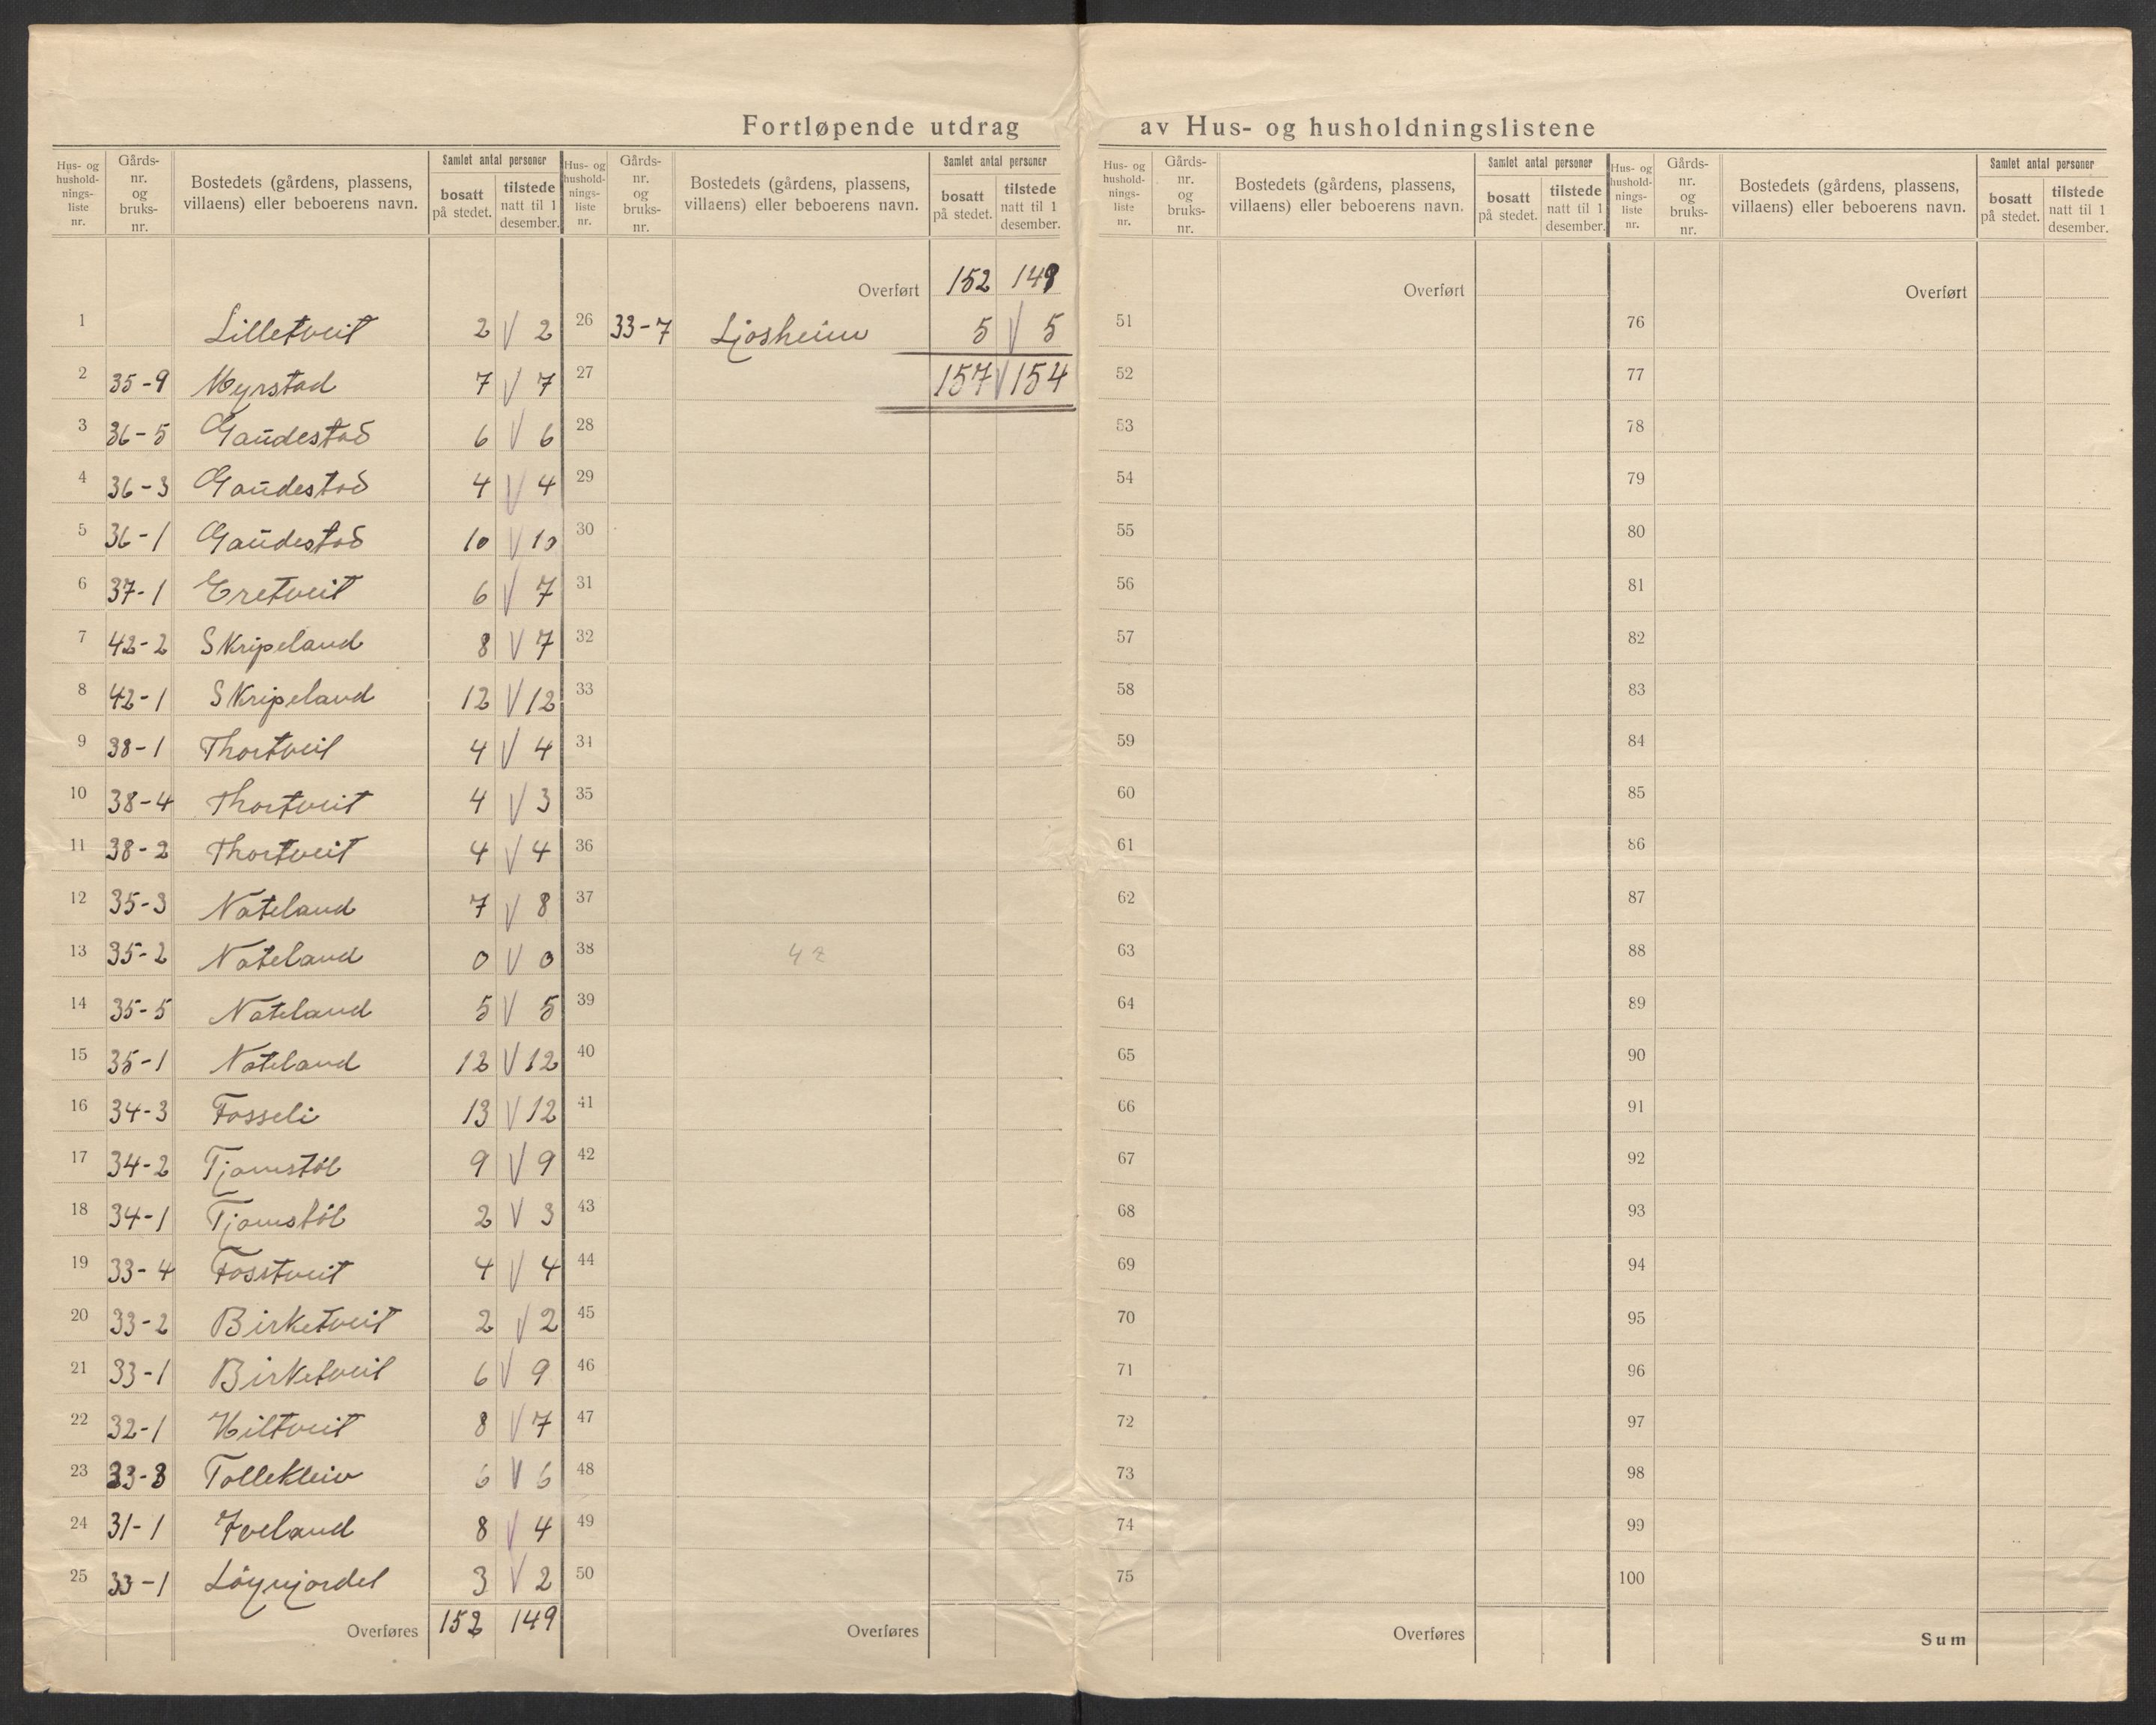 Fortløpende utdrag av Hus- og husholdningslistene
Hus- og husholdningsliste nr. | Gårds-nr. og bruks-nr. | Bostedets (gårdens, plassens, villaens) eller beboerens navn. | Samlet antal personer bosatt på stedet. | tilstede natt til 1 desember.
1 Lilletveit 2 V 2
2 35-9 Myrstad 7 V 7
3 36-5 Gaudestad 6 V 6
4 36-3 Gaudestad 4 V 4
5 36-1 Gaudestad 10 V 10
6 37-1 Eretveit 6 V 7
7 42-2 Skripeland 8 V 7
8 42-1 Skripeland 12 V 12
9 38-1 Thortveit 4 V 4
10 38-4 Thortveit 4 V 3
11 38-2 Thortveit 4 V 4
12 35-3 Nateland 7 V 8
13 35-2 Nateland 0 V 0
14 35-5 Nateland 5 V 5
15 35-1 Nateland 12 V 12
16 34-3 Fosseli 13 V 12
17 34-2 Tjomstöl 9 V 9
18 34-1 Tjomstöl 2 V 3
19 33-4 Fosstveit 4 V 4
20 33-2 Birketveit 2 V 2
21 33-1 Birketveit 6 V 9
22 32-1 Hiltveit 8 V 7
23 33-8 Tollekleiv 6 V 6
24 31-1 Iveland 8 V 4
25 33-1 Löynjordet 3 V 2
Overføres 152 149
Hus- og husholdningsliste nr. | Gårds-nr. og bruks-nr. | Bostedets (gårdens, plassens, villaens) eller beboerens navn. | Samlet antal personer bosatt på stedet. | tilstede natt til 1 desember.
Overført 152 149
26 33-7 Ljosheim 5 V 5
27 157 V 154
28
29
30
31
32
33
34
35
36
37
38 4 z
39
40
41
42
43
44
45
46
47
48
49
50
Overføres
Hus- og husholdningsliste nr. | Gårds-nr. og bruks-nr. | Bostedets (gårdens, plassens, villaens) eller beboerens navn. | Samlet antal personer bosatt på stedet. | tilstede natt til 1 desember.
Overført
51
52
53
54
55
56
57
58
59
60
61
62
63
64
65
66
67
68
69
70
71
72
73
74
75
Overføres
Hus- og husholdningsliste nr. | Gårds-nr. og bruks-nr. | Bostedets (gårdens, plassens, villaens) eller beboerens navn. | Samlet antal personer bosatt på stedet. | tilstede natt til 1 desember.
Overført
76
77
78
79
80
81
82
83
84
85
86
87
88
89
90
91
92
93
94
95
96
97
98
99
100
Sum